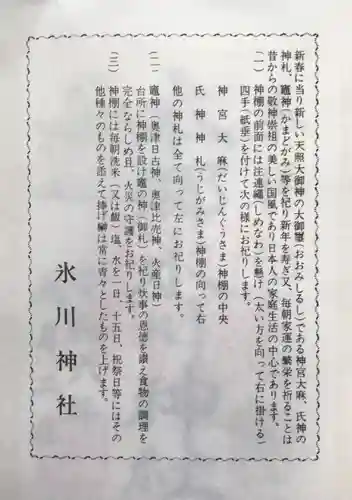 新春に当り新しい天照大御神の大御璽(おおみしるし)である神宮大麻、氏神の
神札、竈神(かまどがみ)等を祀り新年を寿ぎ又、毎朝家運の繁栄を祈ることは
昔からの敬神崇祖の美しい国風であり日本人の家庭生活の中心であります。
(一) 神棚の前面には注連縄(しめなわ)を懸け(太い方を向って右に掛ける)
四手(紙垂)を付けて次の様にお祀りします。
神宮大麻(だいじんぐうさま)神棚の中央
氏神神札(うじがみさま)神棚の向って右
他の神札は全て向って左にお祀りします。
(二) 竈神(奥津日古神、奥津比売神、火産日神)
台所に神棚を設け竈の神(御札)を祀り炊事の恩徳を崇え食物の調理を
完全ならしめ且、火災の守護をお祀りします。
(三) 神棚には毎朝洗米(又は飯)塩、水を一日、十五日、祝祭日等にはその
他種々のものを添えて捧げ榊は常に青々としたものを上げます。
氷川神社